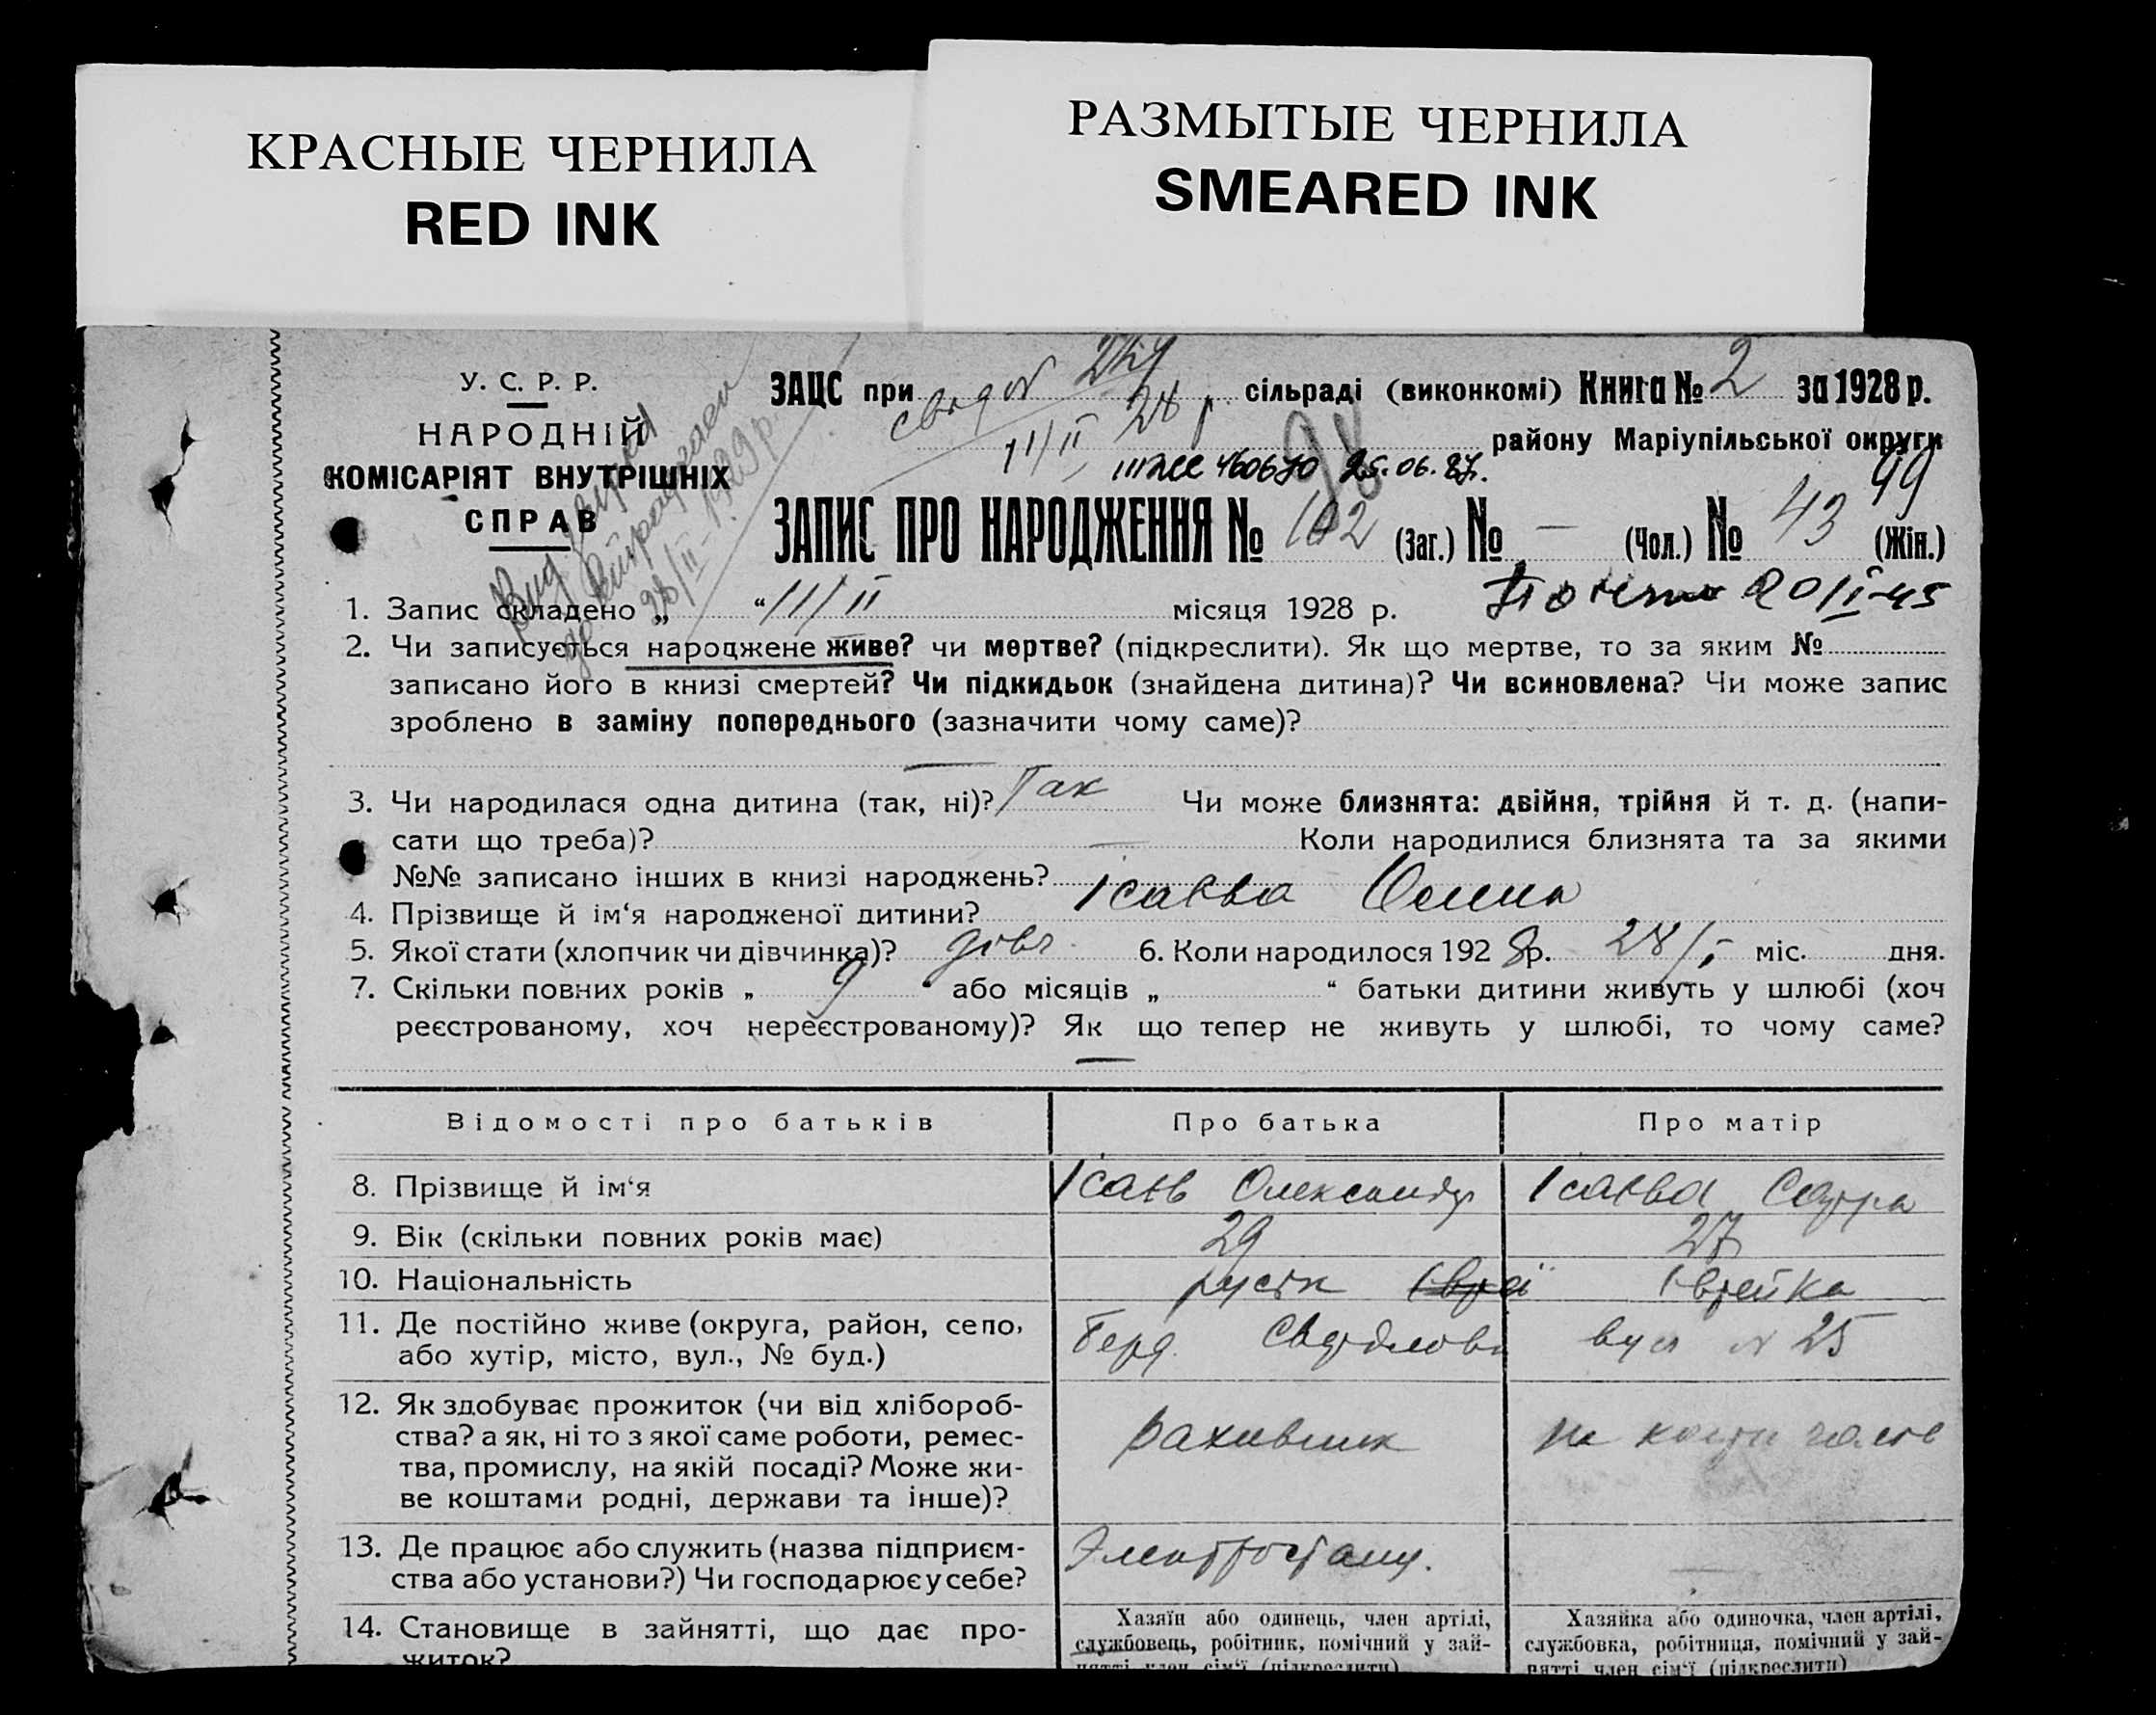 КРАСНЫЕ ЧЕРНИЛА
RED INK
РАЗМЫТЫЕ ЧЕРНИЛА
SMEARED INK
У. С. Р. Р.
НАРОДНІЙ
КОМІСАРІЯТ ВНУТРІШНІХ
СПРАВ
ЗАЦС при 249 сільраді (виконкомі) Книга № 2 за 1928 р.
11/II 28 р. району Маріупільської округи
460670 25.06.87.
99
ЗАПИС ПРО НАРОДЖЕННЯ № 102 (Заг.) № — (Чол.) № 43 (Жін.)
28/II-1929 р.
1. Запис складено „ “ 11/II місяця 1928 р.
2. Чи записується народжене живе? чи мертве? (підкреслити). Як що мертве, то за яким №
записано його в книзі смертей? Чи підкидьок (знайдена дитина)? Чи всиновлена? Чи може запис
зроблено в заміну попереднього (зазначити чому саме)?
—
3. Чи народилася одна дитина (так, ні)? Так Чи може близнята: двійня, трійня й т. д. (напи-
сати що треба)? — Коли народилися близнята та за якими
№№ записано інших в книзі народжень?
4. Прізвище й ім‘я народженої дитини? Ісаєва
5. Якої стати (хлопчик чи дівчинка)? дівч. 6. Коли народилося 1928 р. 28/I міс. дня.
7. Скільки повних років „ 9 “ або місяців „ “ батьки дитини живуть у шлюбі (хоч
реєстрованому, хоч нереєстрованому)? Як що тепер не живуть у шлюбі, то чому саме?
—
Відомості про батьків Про батька Про матір
8. Прізвище й ім‘я Ісаєв Олександр Ісаєва
9. Вік (скільки повних років має) 29 27
10. Національність руськ Єврей Єврейка
11. Де постійно живе (округа, район, село,
або хутір, місто, вул., № буд.) Берд. Свердлова вул № 25
12. Як здобуває прожиток (чи від хлібороб-
ства? а як, ні то з якої саме роботи, ремес-
тва, промислу, на якій посаді? Може жи-
ве коштами родні, держави та інше)? рахивник на
13. Де працює або служить (назва підприєм-
ства або установи?) Чи господарює у себе? Электростанц. —
14. Становище в зайнятті, що дає про-
житок?
Хазяїн або одинець, член артілі,
службовець, робітник, помічний у зай-
нятті член сім‘ї (підкреслити)
Хазяйка або одиночка, член артілі,
службовка, робітниця, помічний у зай-
нятті член сім‘ї (підкреслити)